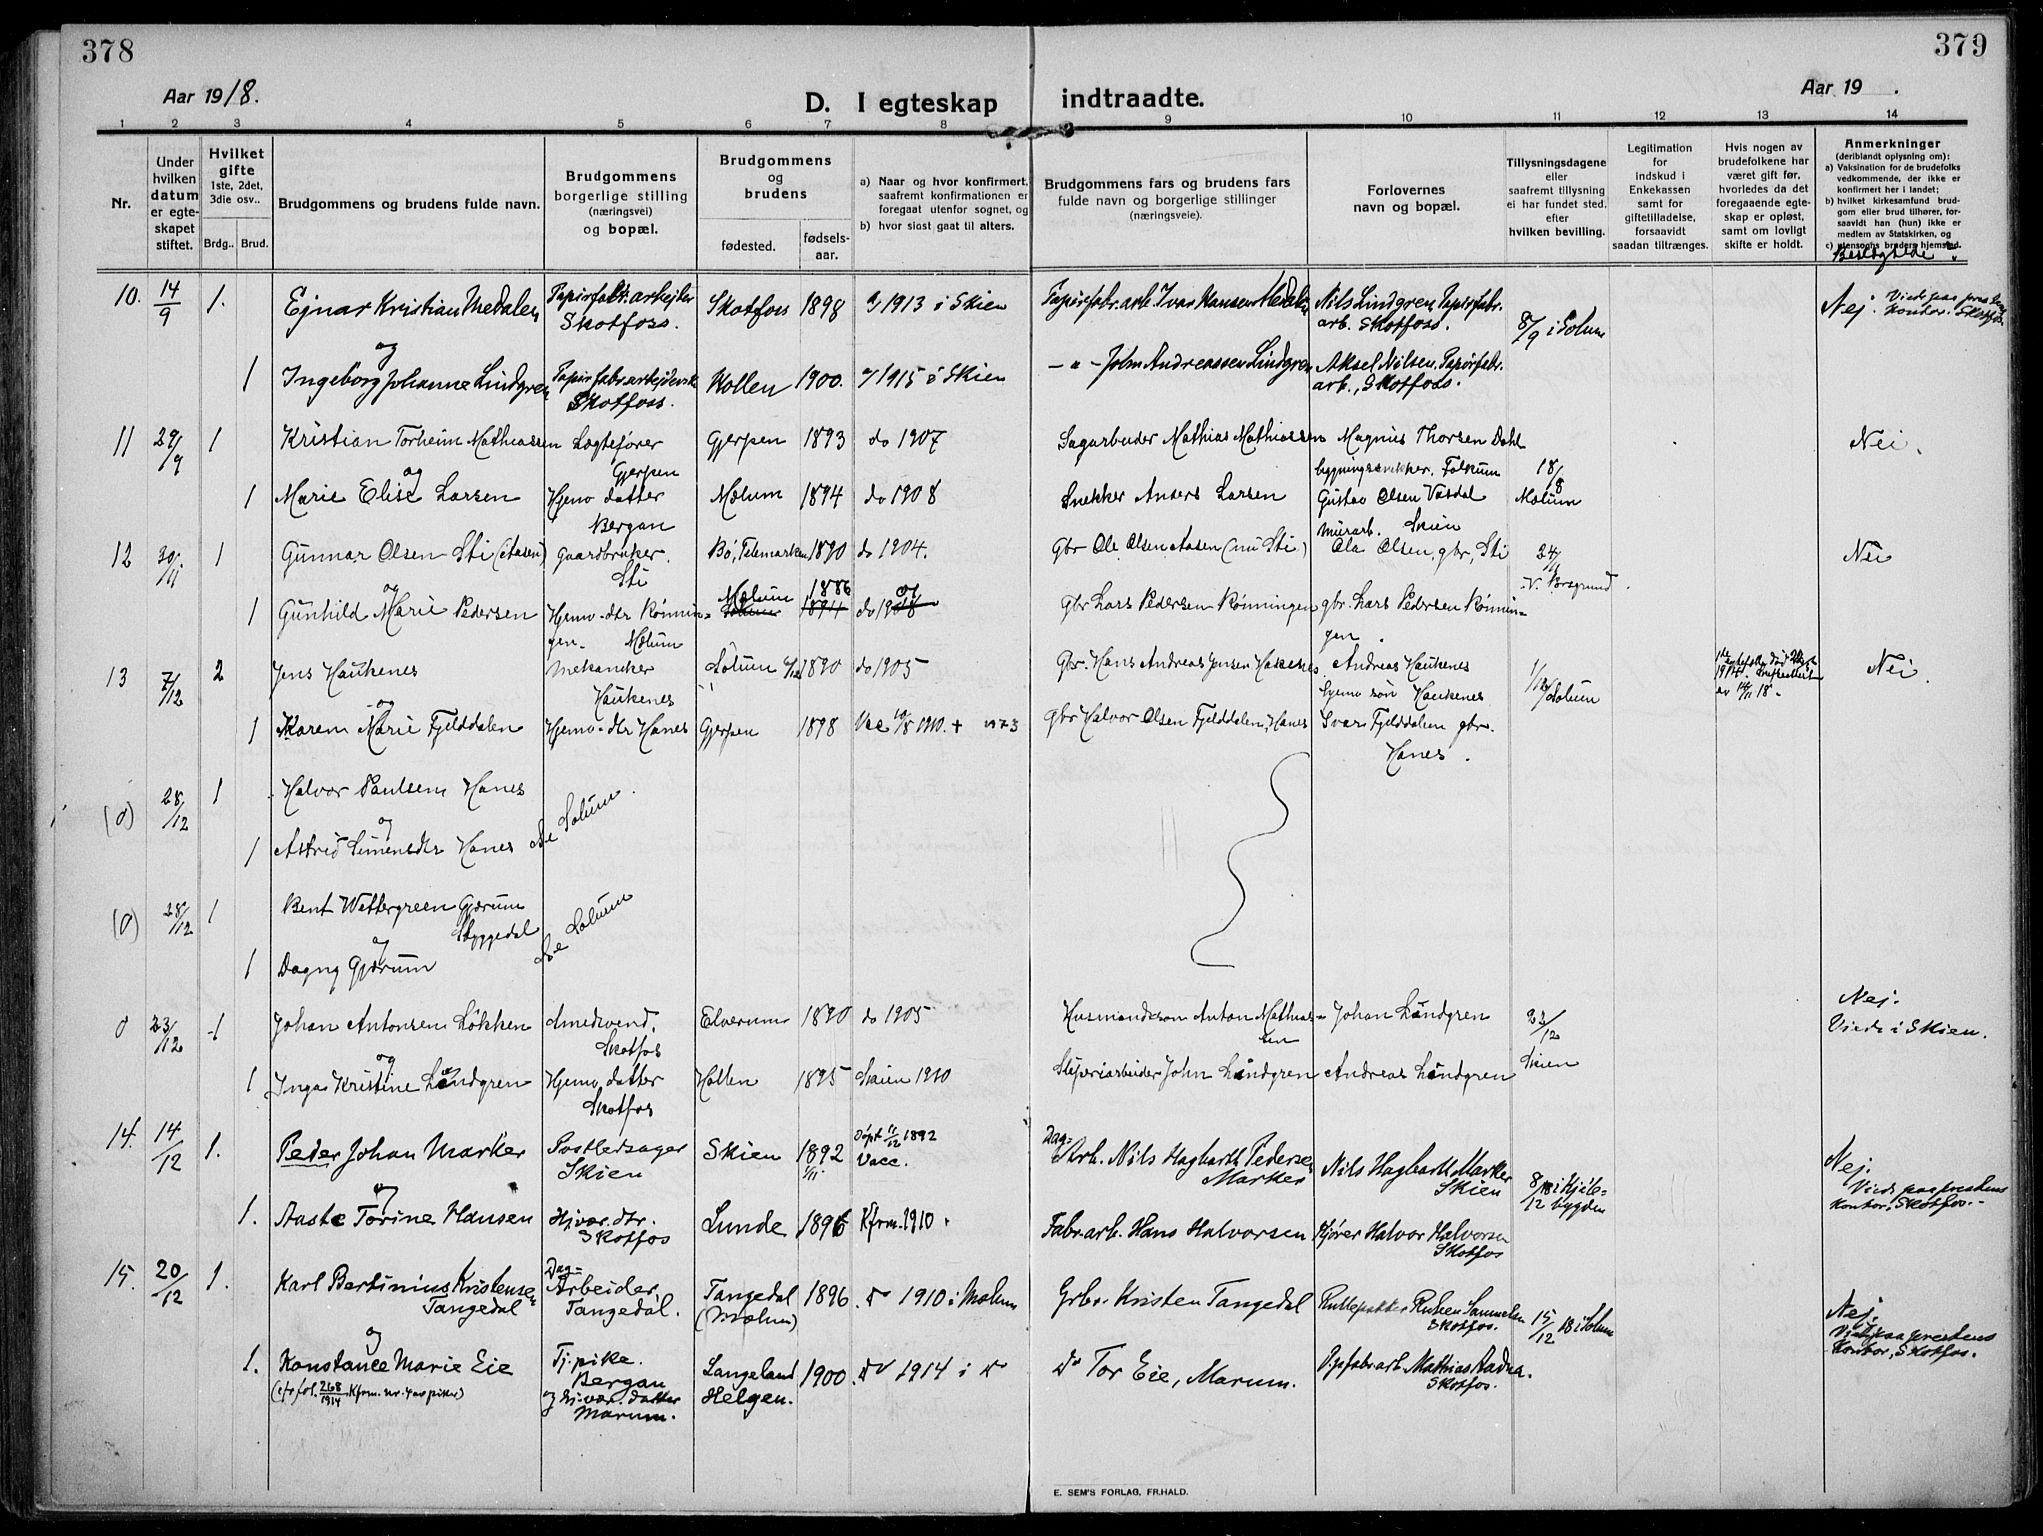 378
379
Aar 1918.
D. I egteskap indtraadte.
Aar 19 .
1 2 3 4 5 6 7 8 9 10 11 12 13 14
Nr.
Under hvilken datum er egteskapet stiftet.
Hvilket gifte 1ste, 2det, 3die osv..
Brdg.. Brud.
Brudgommens og brudens fulde navn.
Brudgommens borgerlige stilling (næringsvei) og bopæl.
Brudgommens og brudens
fødested.
fødselsaar.
a) Naar og hvor konfirmert, saafremt konfirmationen er foregaat utenfor sognet, og
b) hvor sidst gaat til alters.
Brudgommens fars og brudens fars fulde navn og borgerlige stillinger (næringsveie).
Forlovernes navn og bopæl.
Tillysningsdagene eller saafremt tillysning ei har fundet sted, efter hvilken bevilling.
Legitimation for indskud i Enkekassen samt for giftetilladelse, forsaavidt saadan tiltrænges.
Hvis nogen av brudefolkene har været gift før, hvorledes da det foregaaende egteskap er opløst, samt om lovligt skifte er holdt.
Anmerkninger (deriblandt oplysning om):
a) Vaksination for de brudefolks vedkommende, der ikke er konfirmert her i landet;
b) hvilket kirkesamfund brudgom eller brud tilhører, forsaavidt han (hun) ikke er medlem av Statskirken, og
c) utensogns bruders hjemsted.
Beslægtede
10. 14/9 1. Ejnar Kristian Medalen Papirfabr. arbejder Skotfoss. Skotfoss 1898 1913 i Skien Papirfabr. arb. Ivar Hansen Medalen Nils Lindgren, Papirfabr. arb. Skotfoss. 8/9 i Solum Nej. Viede paa prestens kontor. Skotfos
og
1 Ingeborg Johanne Lindgren Papirfabrarbejderske Skotfoss. Hollen 1900. 1915 i Skien - " - John Andreassen Lindgren Aksel Nilsen, Papirfabr. arb., Skotfoss.
11 29/9 1 Kristian Torheim Mathiassen Lægtefører Gjerpen Gjerpen 1893 do 1907 Sagarbeider Mathias Mathiassen Magnus Thorsen Dahl bygningssnekker. Falkum 18/8 Mælum Nei.
og
1 Marie Elise Larsen Hjemv datter Bergan Mælum 1894 do 1908 Snekker Anders Larsen Gustav Olsen Vasdal Murarb. Skien
12 30/11 1 Gunnar Olsen Sti (Aasen) Gaardbruker. Sti Bø, Telemarken 1890 do 1904. Gbr Ole Olsen Aasen (nu Sti) Ola Olsen, gbr, Sti 24/11 Nei
og
1 Gunhild Marie Pedersen Hjemv-dtr Rønningen. Mælum Mælum 1886 1894 do 19 01 Gbr Lars Pedersen Rønningen gbr. Lars Pedersen Rønningen.
13 7/12 2 Jens Haukenes Mekaniker Haukenes Solum 1890 do 1905 Gbr. Hans Andreas Jensen Haukenes Andreas Haukenes hjemv søn Haukenes 1/12 Solum Nei.
og
1 Karen Marie Fjelddalen Hjemv-dtr Hanes Gjerpen 1898 Vac 1910. + 1973 gbr Halvor Olsen Fjelddalen, Hanes Svare Fjelddalen gbr. Hanes.
(d) 28/12 1 Halvor Paulsen Hanes
og
1 Astrid Simensdtr Hanes
Se Solum.
(d) 28/12 1 Bent Wettergreen Gjærum Skyggedal
og
1 Dagny Gjærum
Se Solum
d 23/12 1 Johan Antonsen Løkken Smedsvend. Skotfos Elverum 1890 do 1905 Husmandssøn Anton Mathiassen Johan Lindgren 23/12 Skien Nej. Viede i Skien.
og
1 Inga Kristine Lindgren Hjemv datter Skotfos Hollen 1895 Skien 1910 Sliperiarbeider John Lindgren Andreas Lindgren
14. 14/12 1. Peder Johan Marker Postledsager Skien Skien 1892 1/11. Døpt 11/12 1892 Vacc. Dag=Arb. Nils Hagbarth Pedersen Marker Nils Hagbarth Marker Skien 8/12 18 i Kjølebygden Nej. Viede paa prestens kontor, Skotfos.
og
1. Aaste Torine Hansen Hjvær. dtr. Skotfos Lunde 1896 Kfrm. 1910. Fabr.arb. Hans Halvorsen Kjører Halvor Halvorsen Skotfos
15. 20/12 1. Karl Bertinius Kristensen Tangedal Dag=Arbeider, Tangedal. Tangedal (Mælum) 1896. do 1910 i Mælum Grbr. Kristen Tangedal Rullepakker Ruben Samuelsen Skotfos. 15/12 18 i Solum Nej. Viede paa prestens Kontor, Skotfos.
og
1. Konstance Marie Eie (cfr fol. 268/1914 Kfrm. nr. 4 av piker) Tj. pike. Bergan og hj. vær. datter Marum. Langeland Helgen. 1900. do 1914 i do do Tor Eie, Marum. Ppfabr.arb. Mathias Aadna. Skotfos.
E. SEM'S FORLAG, FR.HALD.